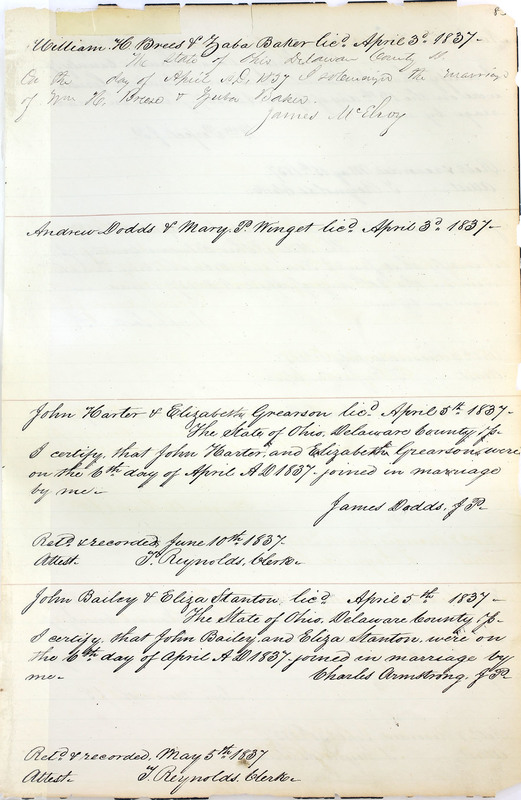 8
William H Brees & Zaba Baker licd April 3d 1837-
The State of Ohio Delaware County SS
On the day of April A.D. 1837 I solemnized the marriage
of Wm H. Brees & Zuba Baker.
James McElroy
Andrew Dodds & Mary P. Winget licd April 3d 1837-
John Harter & Elizabeth Grearson licd April 5th 1837-
The State of Ohio, Delaware County ss.
I certify, that John Harter, and Elizabeth Grearson, were
on the 6th day of April A D 1837. joined in marriage
by me-
James Dodds, J P.
Retd & recorded, June 10th 1837.
Attest. T. Reynolds, Clerk-
John Bailey & Eliza Stanton, licd April 5th 1837-
The State of Ohio, Delaware County ss.
I certify, that John Bailey, and Eliza Stanton, were on
the 6th day of April A D 1837. joined in marriage by
me- Charles Armstrong, J P.
Retd & recorded, May 5th 1837
Attest. T. Reynolds, Clerk-